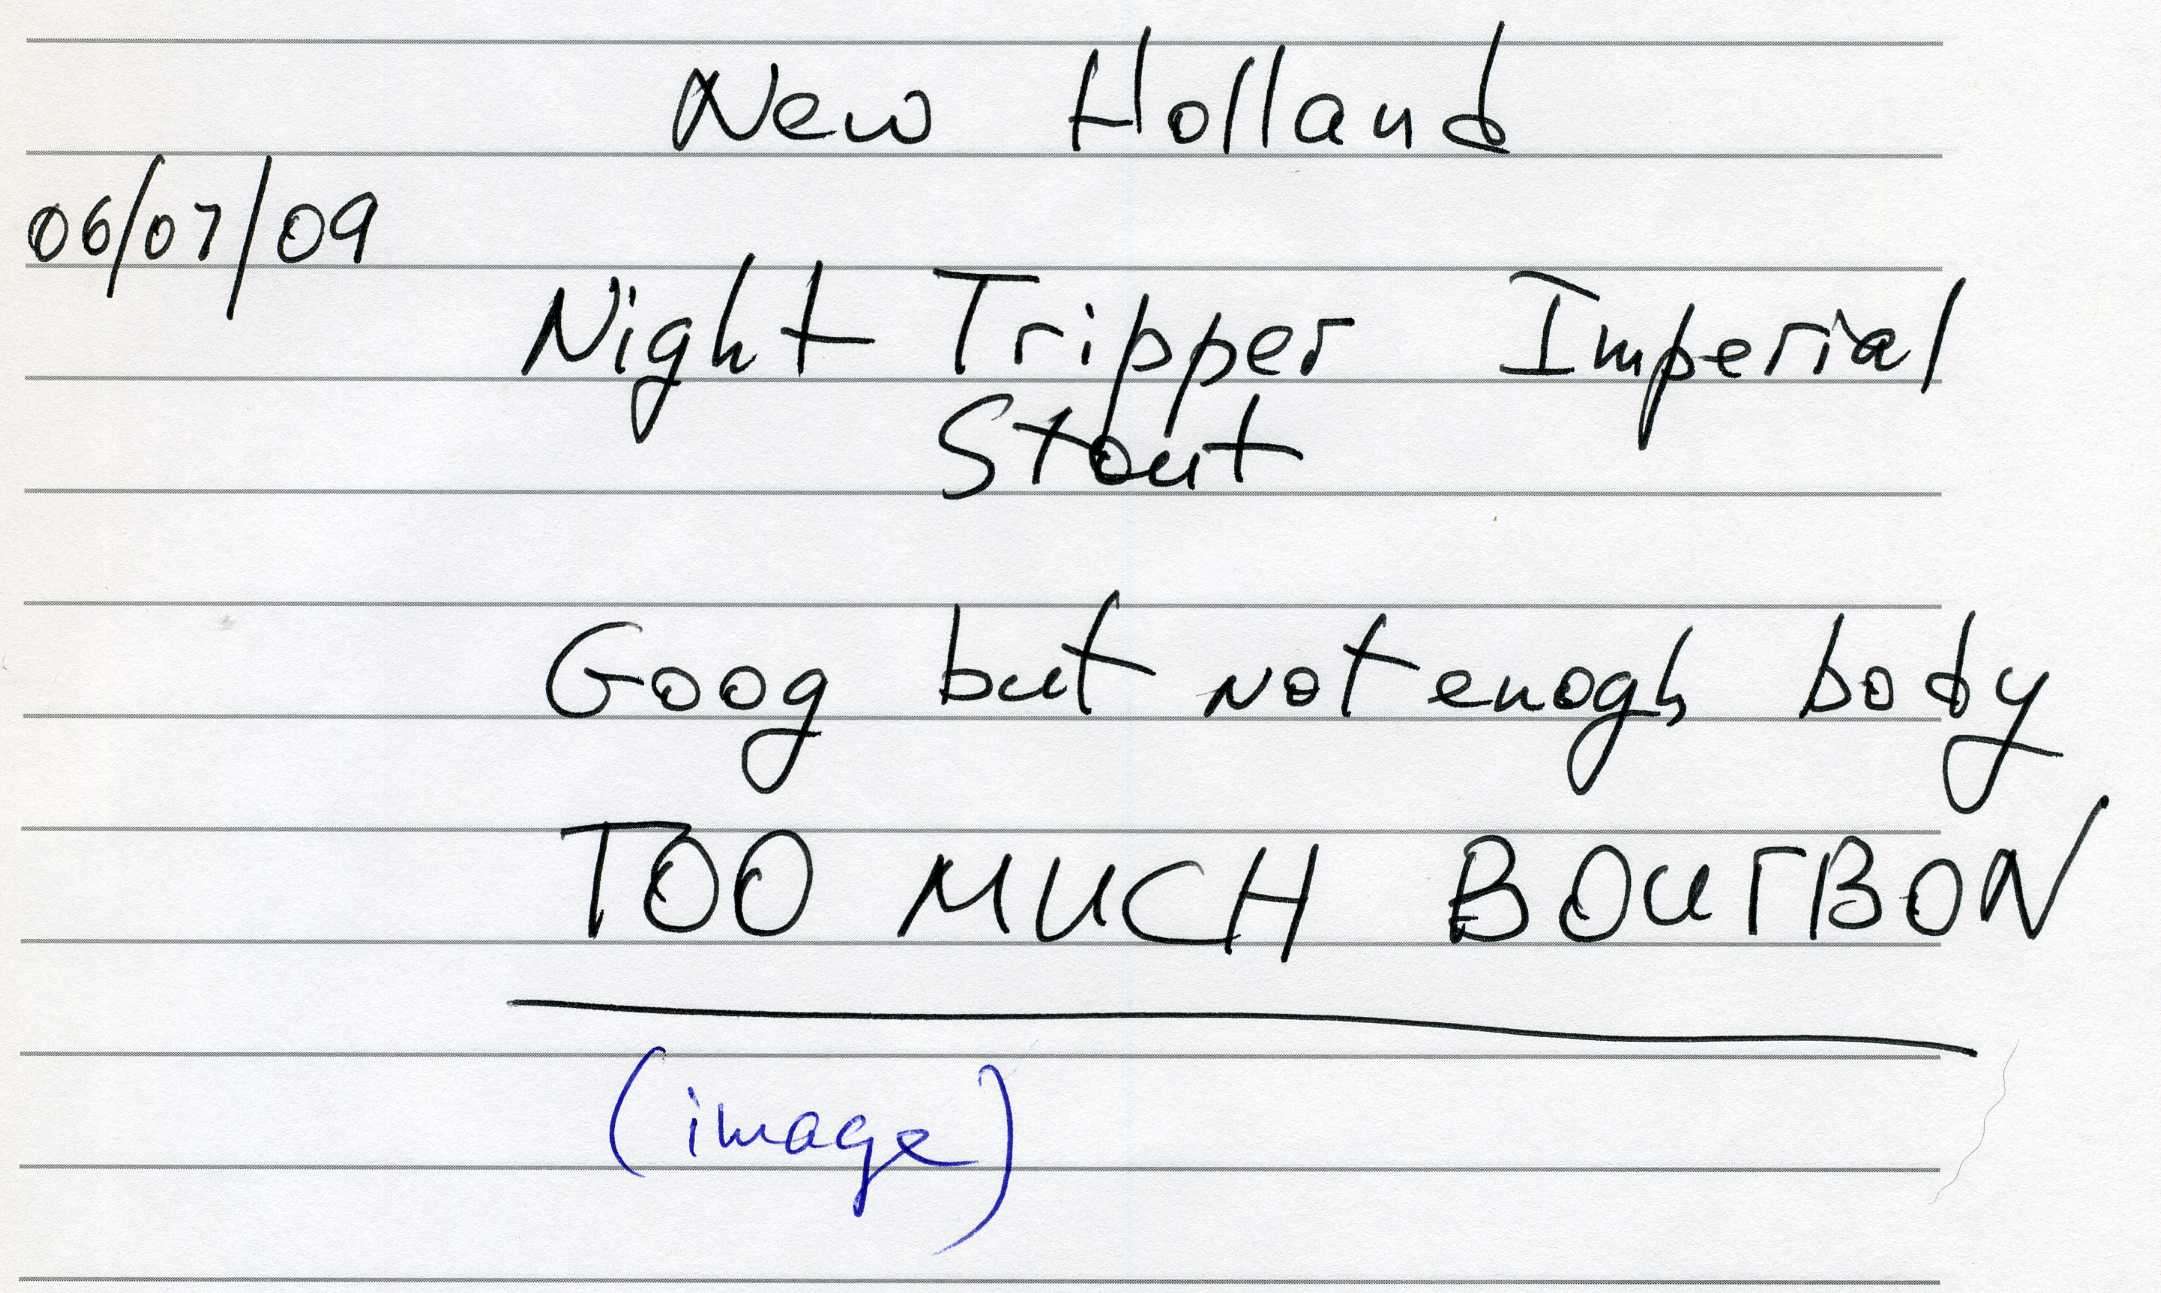 New Holland
06/07/09
Night Tripper Imperial
Stout
Goog but not enogh body
TOO MUCH BOURBON
(image)